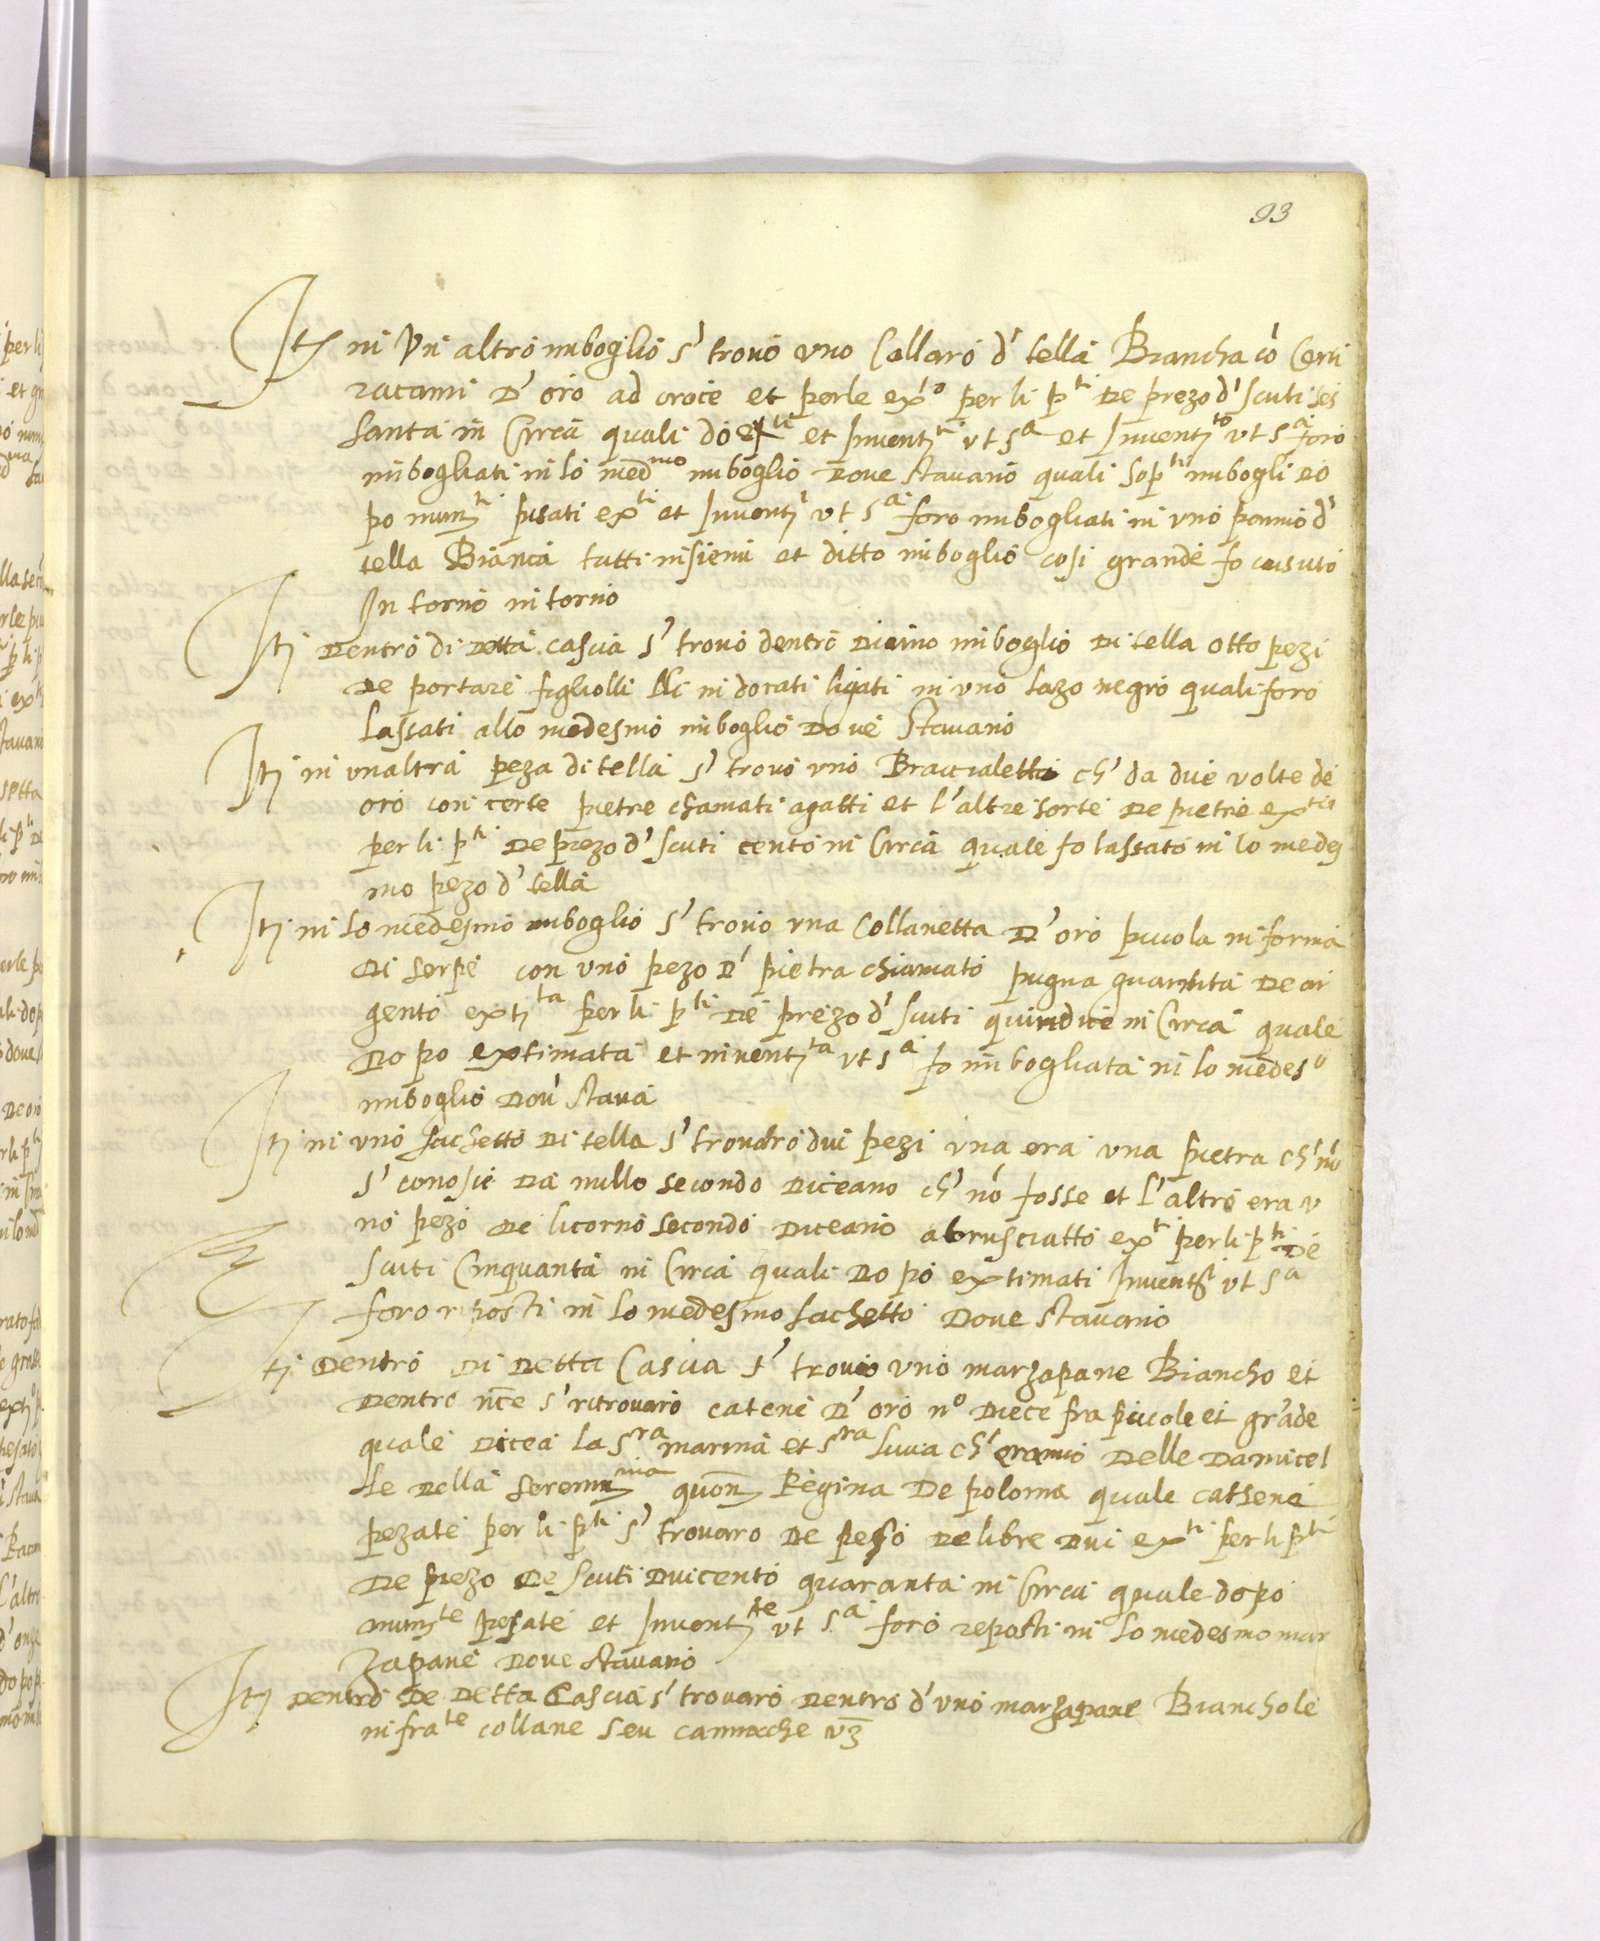 93
Itē in un altro inboglio s' trovò uno Collaro d' tella Biancha cō Certi
racami D' oro ad croce et perle exto per li pti De prezo d' scuti ses
santa in Circa quali do et Inventti ut sa et Inventto ut sa foro
inbogliati in lo medmo inboglio Dove stavano quali sopti inbogli Do
po numti pisati exti et Inventi ut sa foro inbogliati in uno panno d'
tella Bianca tutti insiemi et ditto inboglio cosi grande fo cusuto
In torno in torno
Iti Dentro di Detta cascia s' trovò dentro Di uno inboglio Di tella otto pezi
De portare figliolli in dorati ligati in uno lazo negro quali foro
lassati allo medesmo inboglio Dove stavano
Iti in unaltra peza di tella s' trovò uno Braccialetto ch' da due volte de
oro con certe pietre chamati agatti et l'altre sorte De pietre ex
per li pti De prezo d' scuti cento in Circa quale fo lassato in lo medes
mo pezo d' tella
Iti in lo medesmo inboglio s' trovò una Collanetta D' oro picola in forma
Di serpe con uno pezo D' pietra chiamato pugna quantita De ar
gento extta per li pti De prezo d' scuti quindice in Circa quale
Do po extimata et inventta ut sa fo inbogliata in lo medeso
inboglio Dov' stava
Iti in uno sachetto Di tella s' trovaro dui pezi una era una pietra ch' nō
s' conosie Da nullo secondo Diceano ch' nō fosse et l'altro era u
no pezo De licorno secondo Diceano abrusciatto exti per li pti De
scuti Cinquanta in Circa quali Do po extimati Inventti ut sa
foro riposti in lo medesmo sachetto Dove stavano
Iti Dentro Di Detta Cascia s' trovò uno marzapane Biancho et
Dentro nce s' ritrovaro catene D' oro no Diece fra picole et grāde
quale Dicea la Sra marina et Sra luva ch' eranno Delle Damicel
le Della Serenma quon Regina De polonia quale cathene
pezate per li pti s' trovaro De peso De libre Dui exti per li pti
De prezo De scuti Duicento quaranta in Circa quale dopo
numte pesate et Inventte ut sa foro reposti in lo medesmo mar
zapane Dove stavano
Iti Dentro De Detta Cascia s' trovaro Dentro d' uno marzapane Biancho le
infrate collane seu cannacche vz